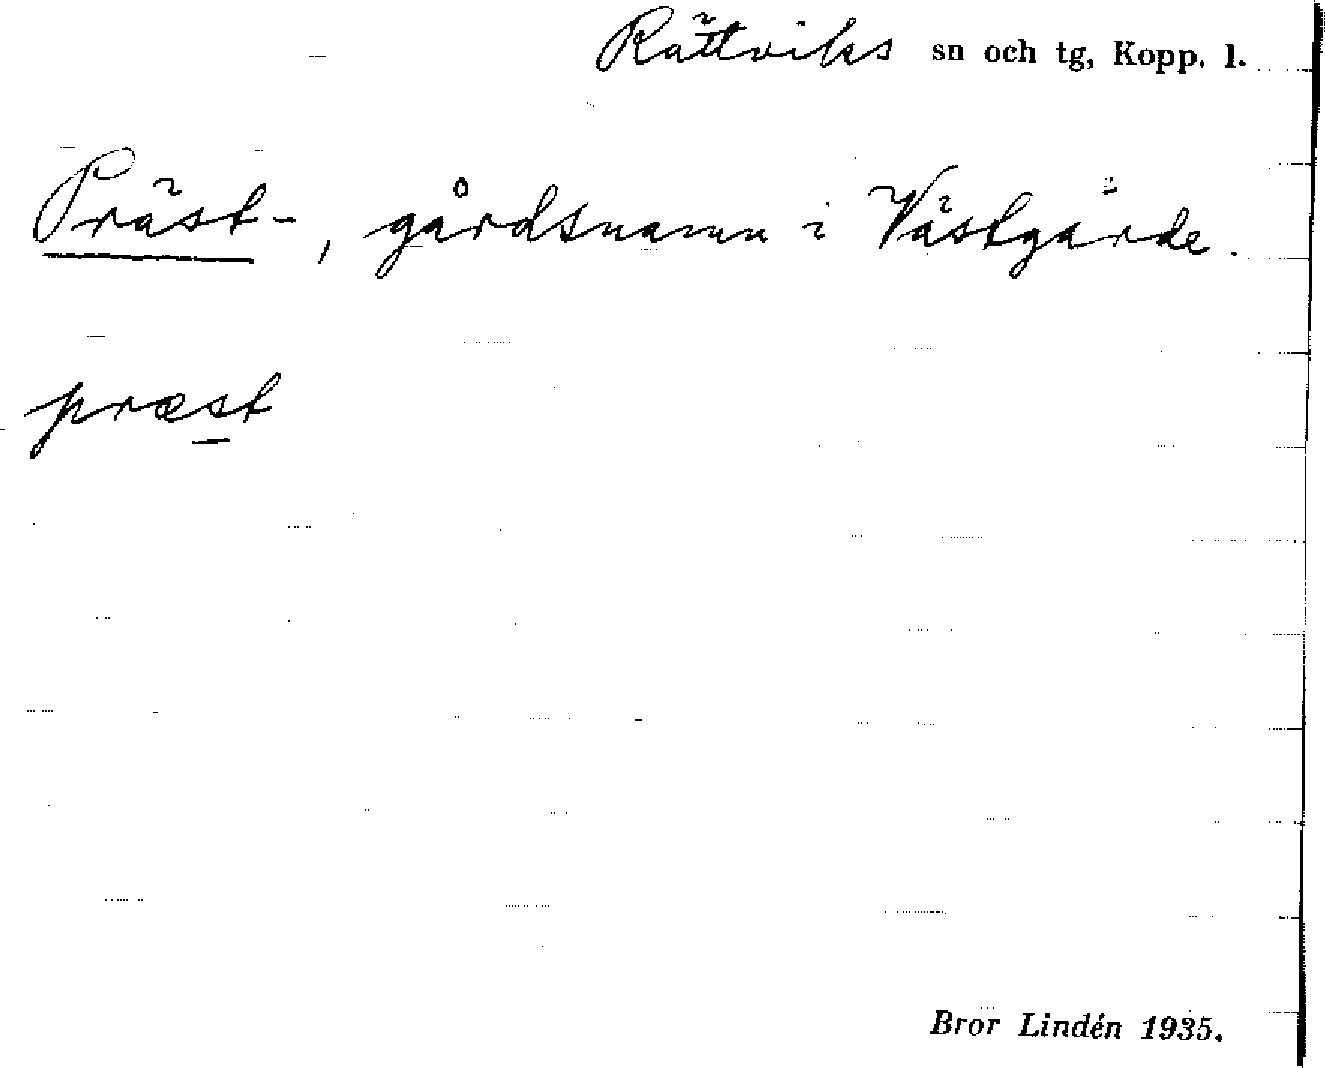 Rättviks sn och tg, Kopp. l.
Präst-, gårdsnamn i Västgärde.
præst
Bror Lindén 1935.